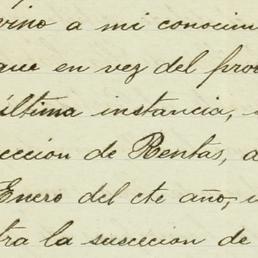 vino a mi conocim
que en vez del pro
última instancia,
ección de Rentas, a
Enero del cte año,
tra la sucesion de